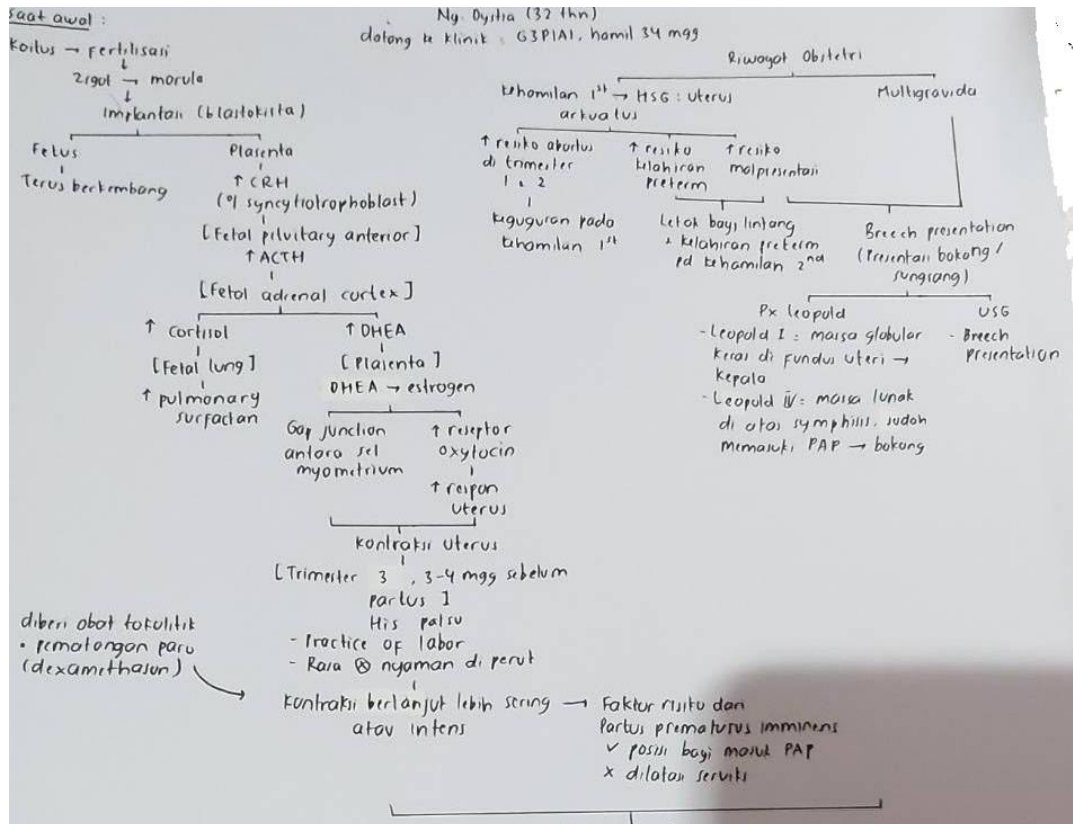 saat awal :
Koitus → fertilisasi
↓
Zigot → morula
↓
Implantasi (blastokista)
Fetus
Terus berkembang
Plasenta
↑ CRH
(o/ syncytiotrophoblast)
[Fetal pituitary anterior]
↑ ACTH
[Fetal adrenal cortex]
↑ Cortisol
[Fetal lung]
↑ pulmonary
surfactan
↑ DHEA
[Plasenta]
DHEA → estrogen
Gap junction
antara sel
myometrium
↑ reseptor
oxytocin
↑ respon
uterus
Kontraksi uterus
[Trimester 3 , 3-4 mgg sebelum
partus ]
His palsu
- Practice of labor
- Rasa ⊗ nyaman di perut
diberi obat tokolitik
+ pematangan paru
(dexamethason)
Kontraksi berlanjut lebih sering → Faktor risiko dan
atau intens
Partus prematurus imminens
✓ posisi bayi masuk PAP
× dilatasi serviks
Ny. Dystia (32 thn)
datang ke klinik : G3P1A1, hamil 34 mgg
Riwayat Obstetri
Kehamilan 1st → HSG : uterus
arkuatus
↑ resiko abortus
di trimester
1 & 2
Keguguran pada
kehamilan 1st
↑ resiko
kelahiran
preterm
↑ resiko
malpresentasi
Letak bayi lintang
+ kelahiran preterm
pd kehamilan 2nd
Multigravida
Breech presentation
(Presentasi bokong /
sungsang)
Px leopold
- Leopold I : massa globular
keras di fundus uteri →
kepala
- Leopold IV : massa lunak
di atas symphisis, sudah
memasuki PAP → bokong
USG
- Breech
presentation